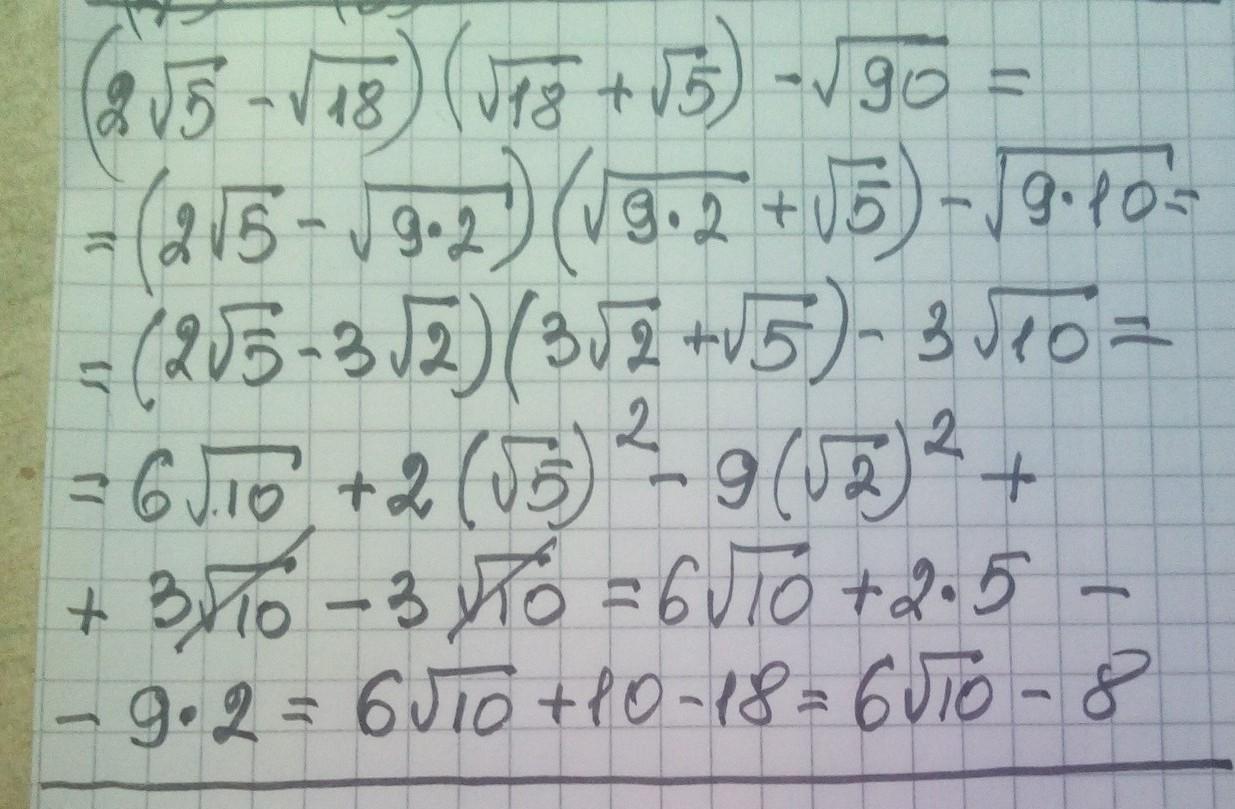 (2√5 - √18)(√18 + √5) - √90 =
= (2√5 - √9·2)(√9·2 + √5) - √9·10 =
= (2√5 - 3√2)(3√2 + √5) - 3√10 =
= 6√10 + 2(√5)² - 9(√2)² +
+ 3√10 - 3√10 = 6√10 + 2·5 -
- 9·2 = 6√10 + 10 - 18 = 6√10 - 8